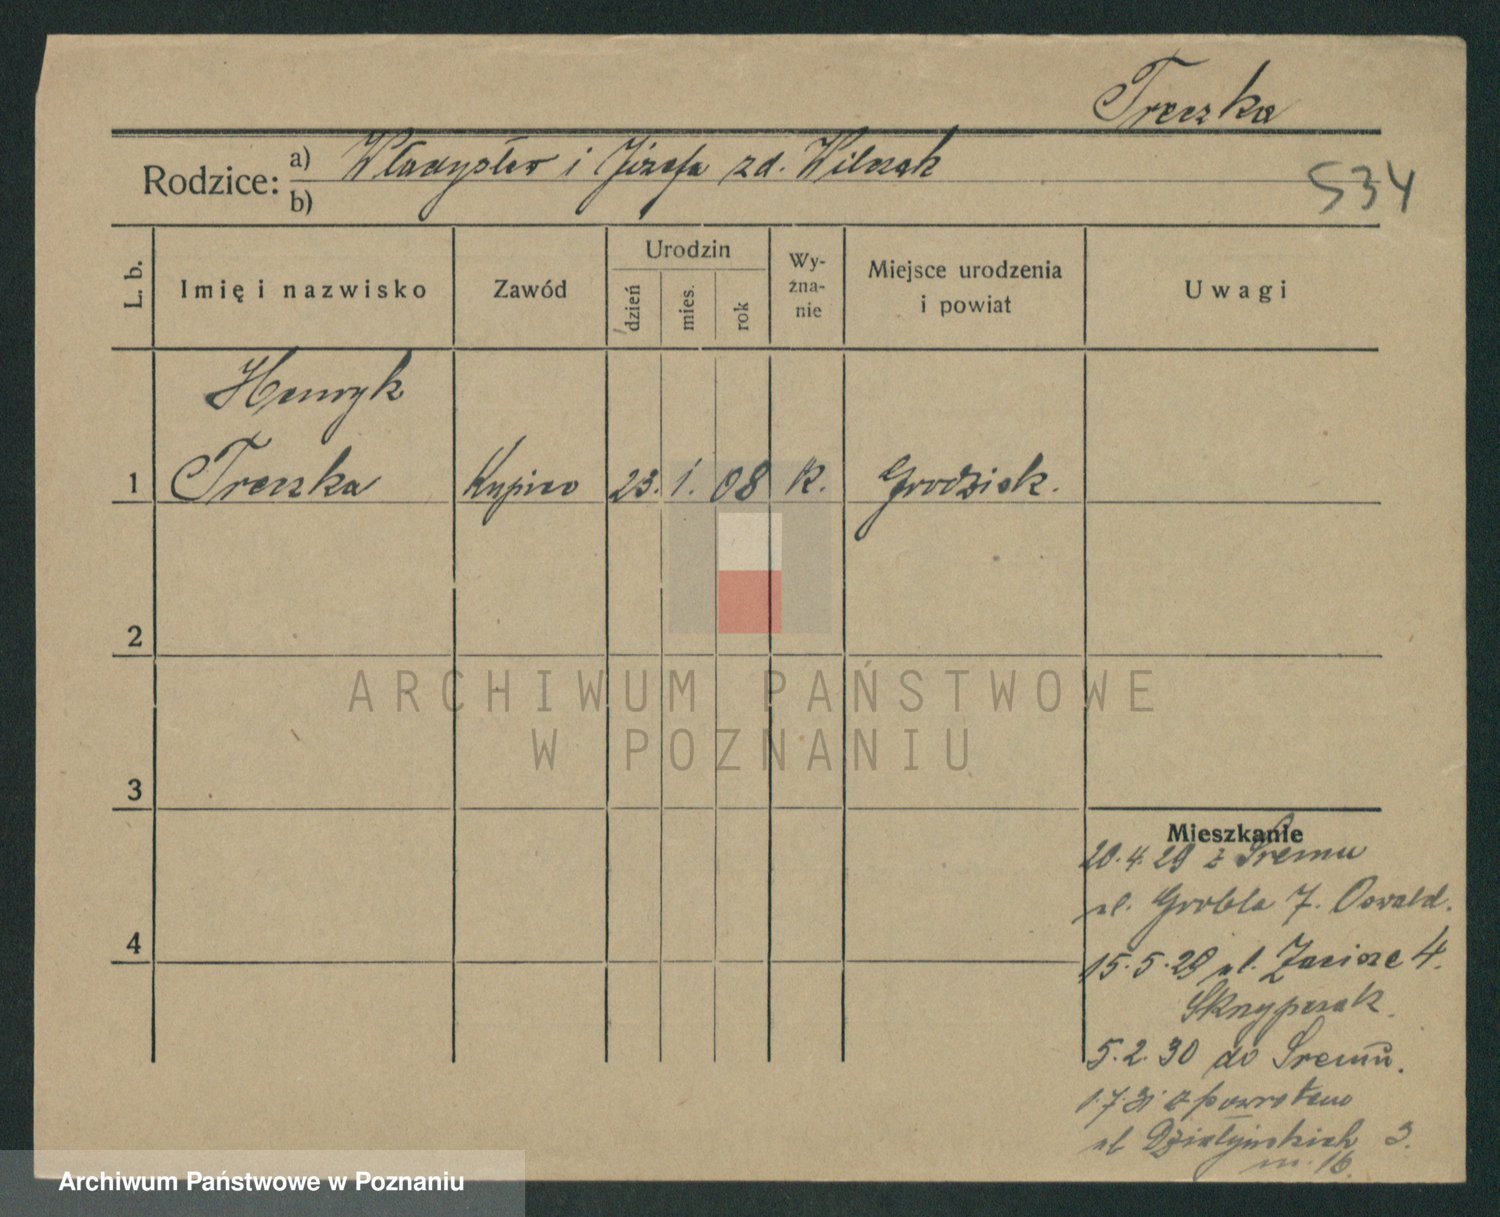 Treszka
Rodzice: a) Władysław i Józefa zd. Wilczak
b)
534
L. b.
Imię i nazwisko
Zawód
Urodzin
dzień
mies.
rok
Wy-
żna-
nie
Miejsce urodzenia
i powiat
Uwagi
Henryk
1 Treszka Kupiec 23. 1. 08 k. Grodzisk.
2
ARCHIWUM PAŃSTWOWE
W POZNANIU
3
Mieszkanie
20.4.29 z Śremu
ul. Grobla 7. Oswald.
4
15.5.29 ul. Zacisze 4.
Skrzypczak.
5.2.30 do Śremu.
1.7.31 z powrotem
ul Działyńskich 3.
m. 16.
Archiwum Państwowe w Poznaniu